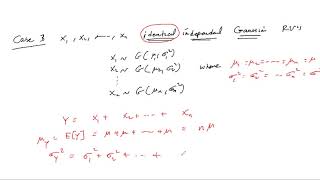 Case 3 x₁, x₂, ..., xₙ identical independent Gaussian RV's
x₁ ~ G(μ₁, σ₁²)
x₂ ~ G(μ₂, σ₂²) where μ₁ = μ₂ = ... = μₙ = μ
σ₁² = σ₂² = ... σₙ² = σ²
xₙ ~ G(μₙ, σₙ²)
Y = x₁ + x₂ + ... + xₙ
μ_Y = E[Y] = μ + μ + ... + μ = nμ
σ_Y² = σ₁² + σ₂² + ... +